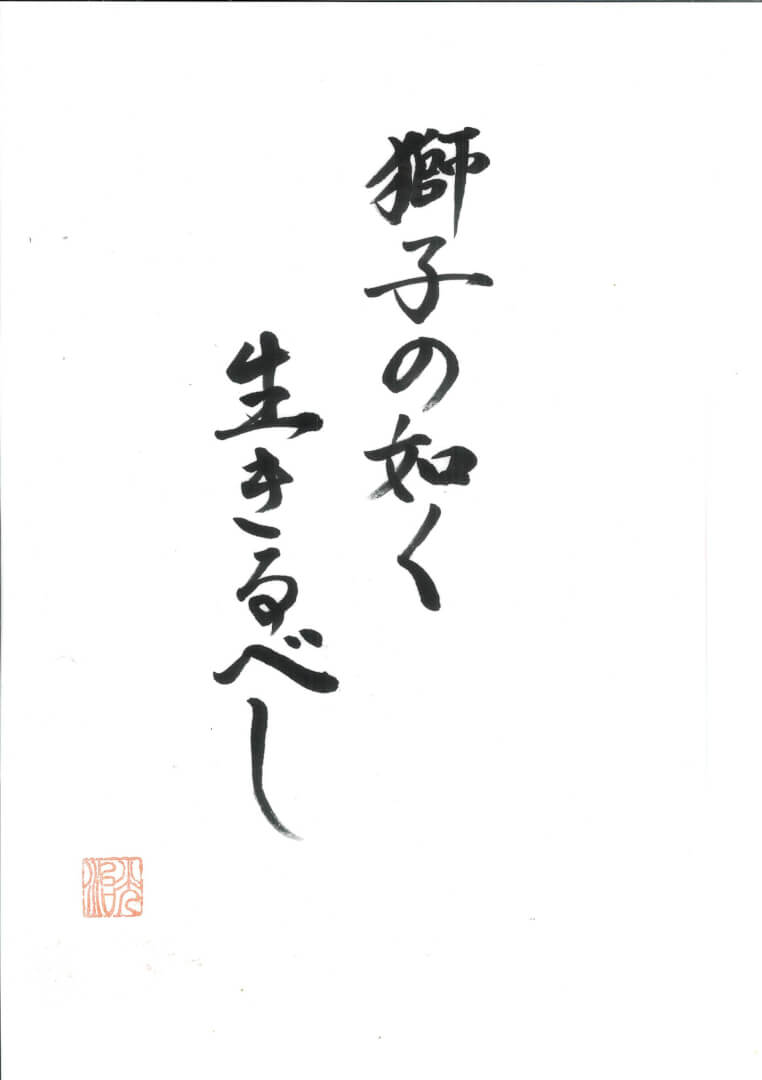 獅子の如く
生きるべし